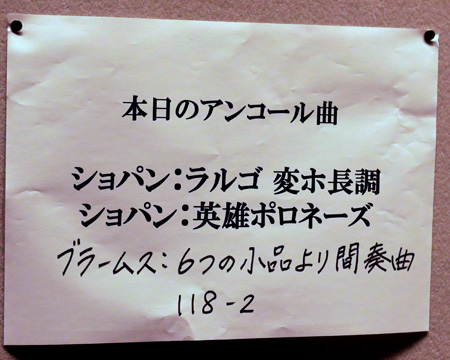 本日のアンコール曲
ショパン：ラルゴ 変ホ長調
ショパン：英雄ポロネーズ
ブラームス：6つの小品より間奏曲
118-2